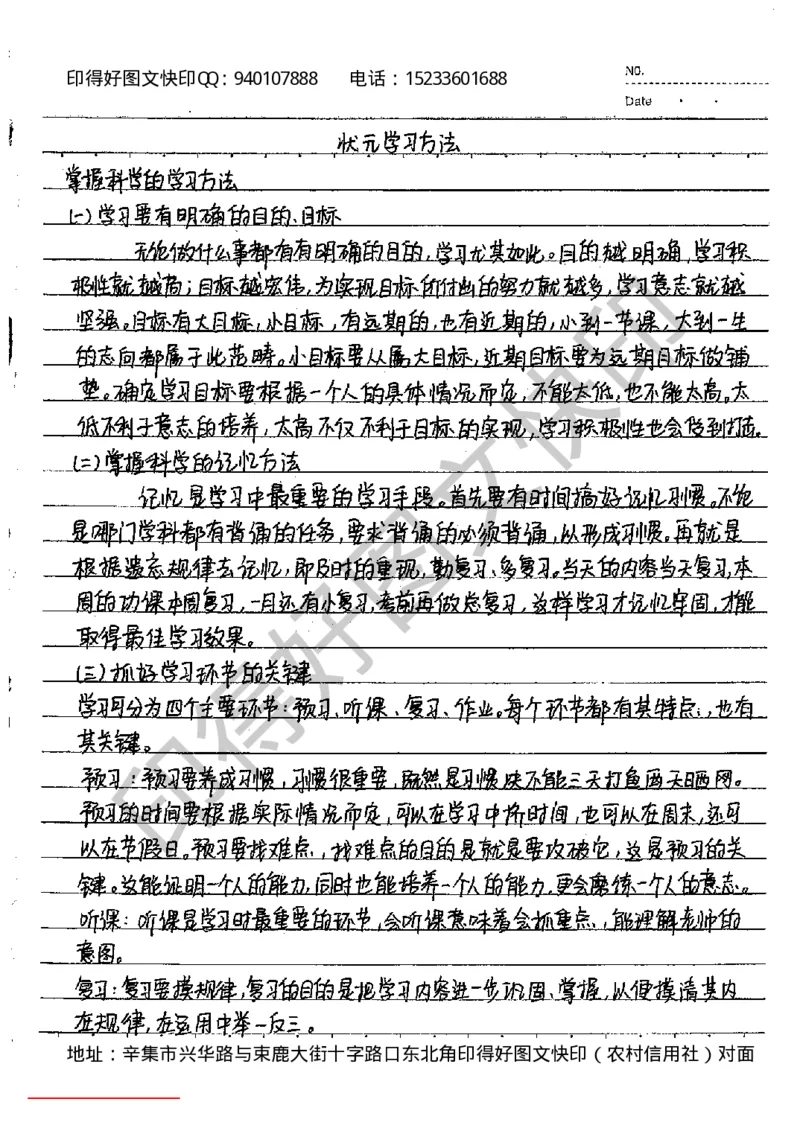 印得好图文快印QQ：940107888 电话：15233601688
NO.
Date
状元学习方法
掌握科学的学习方法
(一)学习要有明确的目的、目标
无论做什么事都有有明确的目的，学习尤其如此。目的越明确，学习积
极性就越高；目标越宏伟，为实现目标所付出的努力就越多，学习意志就越
坚强。目标有大目标，小目标，有远期的，也有近期的，小到一节课，大到一生
的志向都属于此范畴。小目标要从属大目标，近期目标要为远期目标做铺
垫。确定学习目标要根据一个人的具体情况而定，不能太低，也不能太高。太
低不利于意志的培养，太高不仅不利于目标的实现，学习积极性也会受到打击。
(二)掌握科学的记忆方法
记忆是学习中最重要的学习手段。首先要有时间搞好记忆习惯。不论
是哪门学科都有背诵的任务，要求背诵的必须背诵，从形成习惯。再就是
根据遗忘规律去记忆，即及时的重现，勤复习、多复习。当天的内容当天复习，本
周的功课本周复习，一月还有小复习，考前再做总复习，这样学习才记忆牢固，才能
取得最佳学习效果。
(三)抓好学习环节的关键
学习可分为四个主要环节：预习、听课、复习、作业。每个环节都有其特点，也有
其关键。
预习：预习要养成习惯，习惯很重要，既然是习惯快不能三天打鱼两天晒网。
预习的时间要根据实际情况而定，可以在学习中挤时间，也可以在周末，还可
以在节假日。预习要找难点，找难点的目的是就是要攻破它，这是预习的关
键。这能证明一个人的能力，同时也能培养一个人的能力，更会磨练一个人的意志。
听课：听课是学习时最重要的环节，会听课意味着会抓重点，能理解老师的
意图。
复习：复习要摸规律，复习的目的是把学习内容进一步巩固、掌握，以便摸清其内
在规律，在运用中举一反三。
地址：辛集市兴华路与束鹿大街十字路口东北角印得好图文快印（农村信用社）对面
印得好图文快印